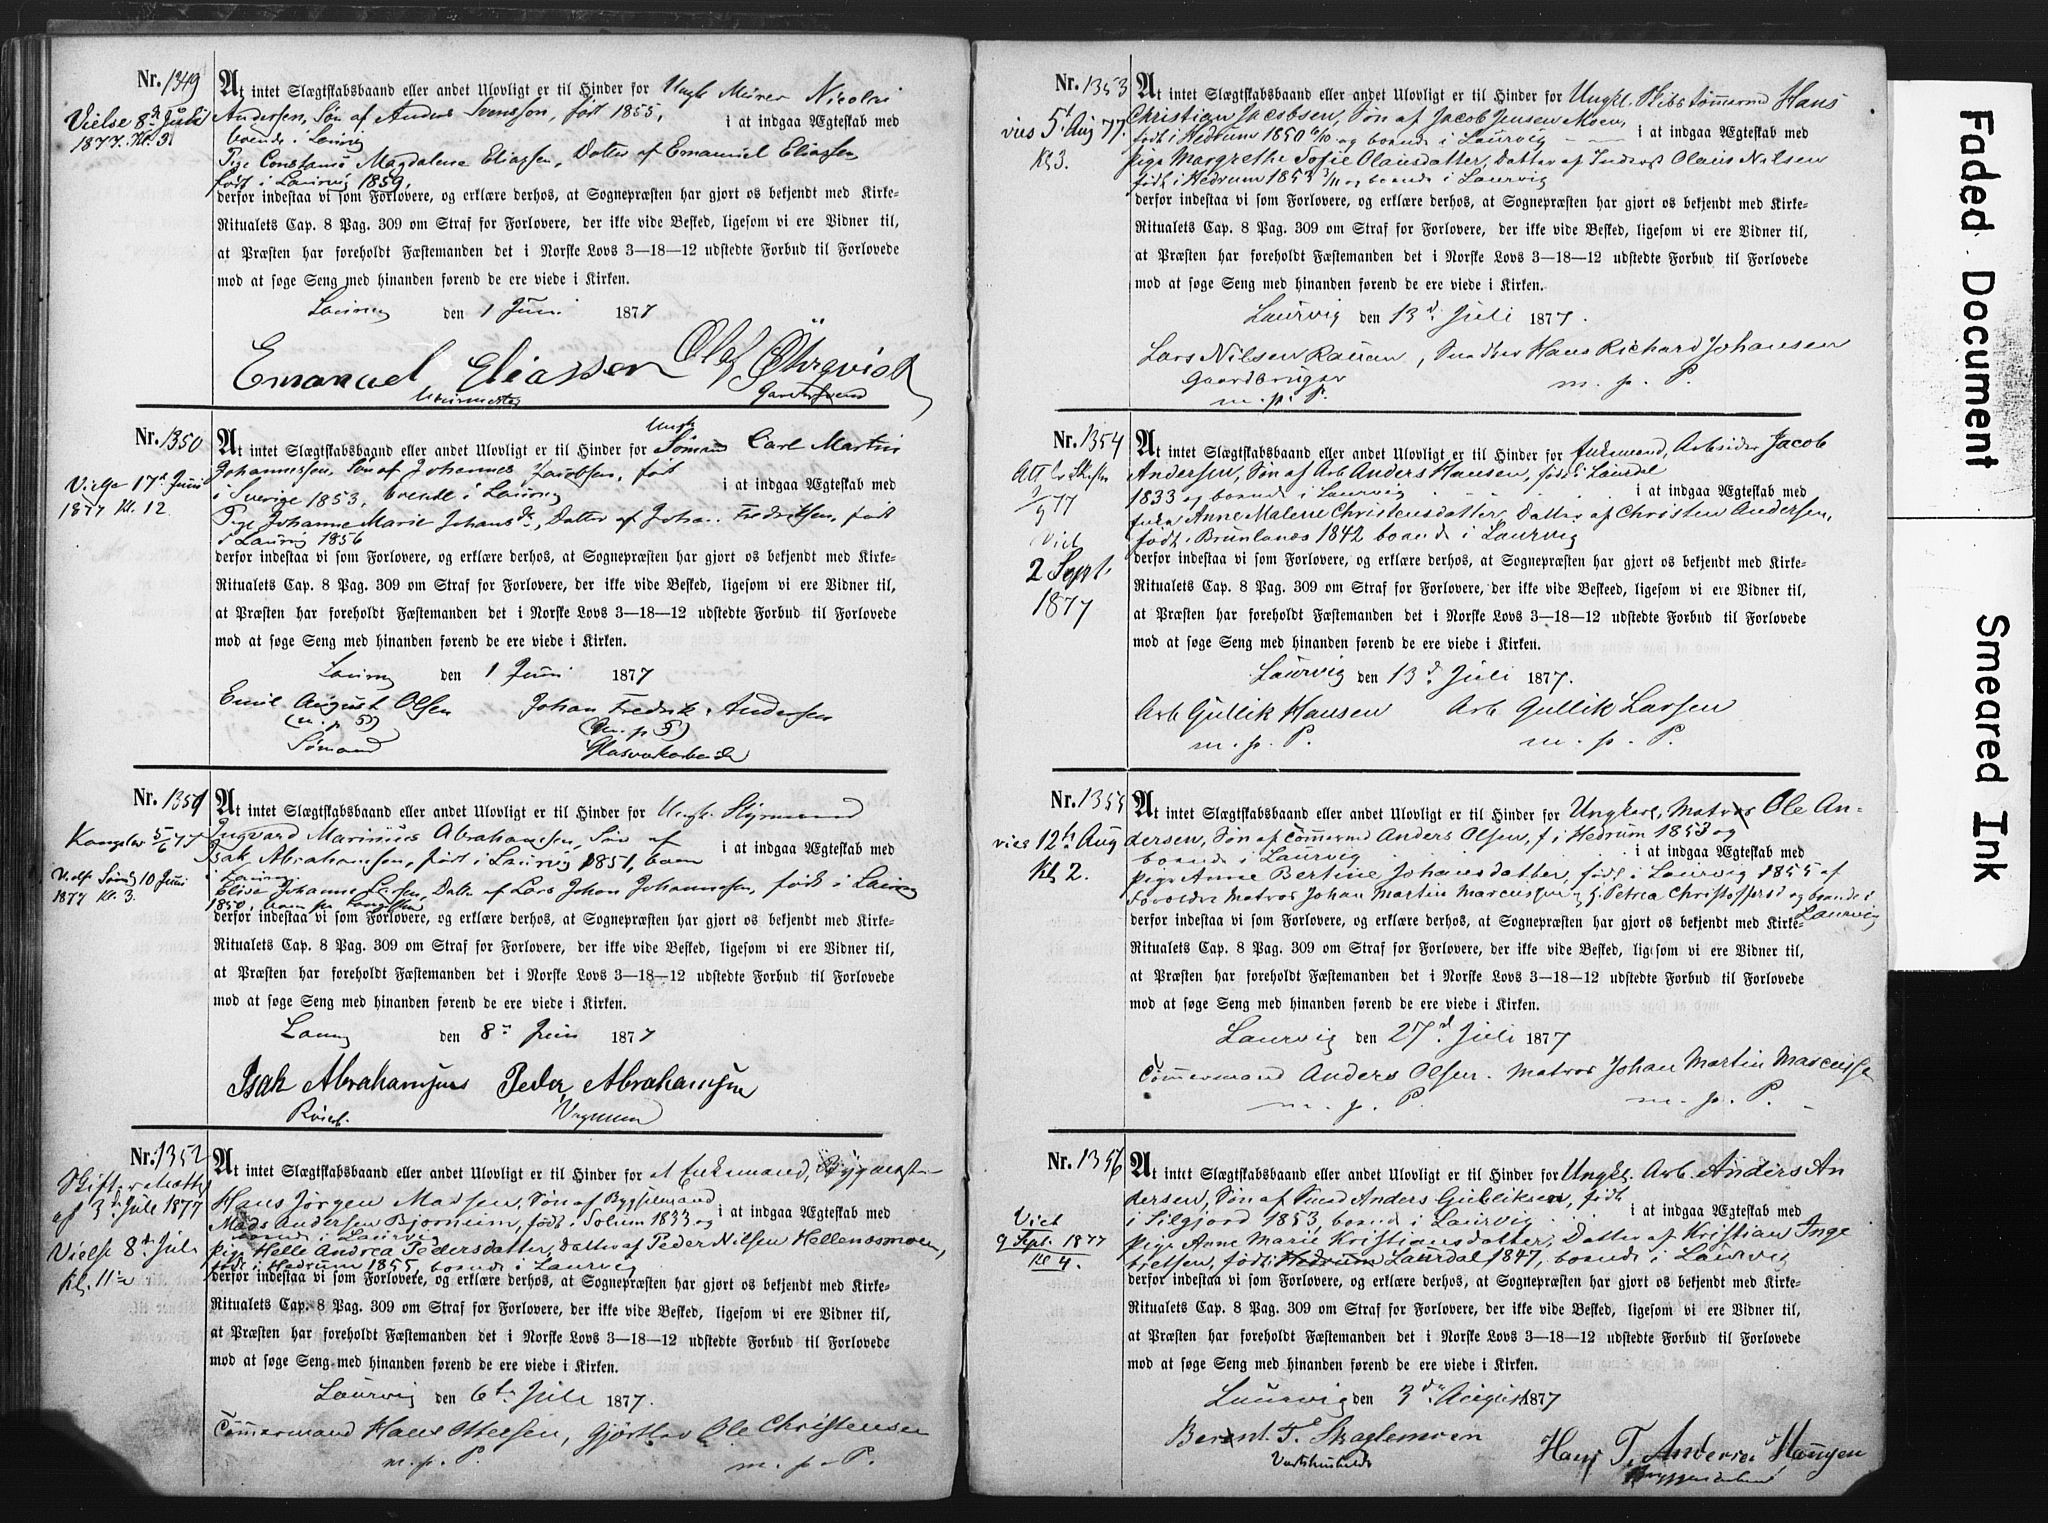 Nr. 1349
Vielse 8de Juli
1877. Kl. 3
At intet Slægtskabsbaand eller andet Ulovligt er til Hinder for Ungk. Murer Nicolai
Andersen, Søn af Anders Svensson, født 1855,
boende i Laurvig
i at indgaa Ægteskab med
Pige Constance Magdalene Eliassen, Datter af Emanuel Eliassen
født i Laurvig 1859,
derfor indestaa vi som Forlovere, og erklære derhos, at Sognepræsten har gjort os bekjendt med Kirke-
Ritualets Cap. 8 Pag. 309 om Straf for Forlovere, der ikke vide Besked, ligesom vi ere Vidner til,
at Præsten har foreholdt Fæstemanden det i Norske Lovs 3—18—12 udstedte Forbud til Forlovede
mod at søge Seng med hinanden førend de ere viede i Kirken.
Laurvig den 1 Juni 1877
Emanuel Eliassen Olaf Öhrqvist
Murmester
Nr. 1350
Vielse 17de Juni
1877 Kl. 12
Ungk.
At intet Slægtskabsbaand eller andet Ulovligt er til Hinder for Sømand Carl Martin
Johannessen, Søn af Johannes Jacobsen, født
i Sverige 1853, boende i Laurvig
i at indgaa Ægteskab med
Pige Johanne Marie Johansdr, Datter af Johan Fredriksen, født
i Laurvig 1856
derfor indestaa vi som Forlovere, og erklære derhos, at Sognepræsten har gjort os bekjendt med Kirke-
Ritualets Cap. 8 Pag. 309 om Straf for Forlovere, der ikke vide Besked, ligesom vi ere Vidner til,
at Præsten har foreholdt Fæstemanden det i Norske Lovs 3—18—12 udstedte Forbud til Forlovede
mod at søge Seng med hinanden førend de ere viede i Kirken.
Laurvig den 1 Juni 1877
Emil August Olsen Johan Fredrik Andersen
(m. p. P) (m. p. P)
Sømand Glasværkarbeider
Nr. 1351
5/6 77
Vielse Sønd 10 Juni
1877 Kl. 3.
At intet Slægtskabsbaand eller andet Ulovligt er til Hinder for Ungk. Styrmand
Ingvard Marinius Abrahamsen, Søn af
Isak Abrahamsen, født i Laurvig 1851, boen
i Laurvig
i at indgaa Ægteskab med
Elise Johanne Larsen, Datter af Lars Johan Johannesen, født i Laurvig
1850, boen paa Langestrand
derfor indestaa vi som Forlovere, og erklære derhos, at Sognepræsten har gjort os bekjendt med Kirke-
Ritualets Cap. 8 Pag. 309 om Straf for Forlovere, der ikke vide Besked, ligesom vi ere Vidner til,
at Præsten har foreholdt Fæstemanden det i Norske Lovs 3—18—12 udstedte Forbud til Forlovede
mod at søge Seng med hinanden førend de ere viede i Kirken.
Laurvig den 8de Juni 1877
Isak Abrahamsens Peder Abrahamsen
Nr. 1352
Skifterets Att
af 3de Juli 1877
Vielse 8de Juli
Kl. 11
At intet Slægtskabsbaand eller andet Ulovligt er til Hinder for at Enkemand, Bygmester
Hans Jørgen Madsen, Søn af Bygselmand
Mads Andersen Bjørnum, født i Solum 1833 og
boende i Laurvig
i at indgaa Ægteskab med
Pige Helle Andrea Pedersdatter, Datter af Peder Nilsen Hellenesmoen,
født i Hedrum 1855, boende i Laurvig
derfor indestaa vi som Forlovere, og erklære derhos, at Sognepræsten har gjort os bekjendt med Kirke-
Ritualets Cap. 8 Pag. 309 om Straf for Forlovere, der ikke vide Besked, ligesom vi ere Vidner til,
at Præsten har foreholdt Fæstemanden det i Norske Lovs 3—18—12 udstedte Forbud til Forlovede
mod at søge Seng med hinanden førend de ere viede i Kirken.
Laurvig den 6te Juli 1877.
Tømmermand Hans Ottesen, Gjørtler Ole Christensen
m. p. P. m. p. P.
Nr. 1353
vies 5t Aug 77.
Kl 3.
At intet Slægtskabsbaand eller andet Ulovligt er til Hinder for Ungkl. Skibstømmermd Hans
Christian Jacobsen, Søn af Jacob Jensen Moen,
født i Hedrum 1850 6/10 og boende i Laurvig
i at indgaa Ægteskab med
Pige Margrethe Sofie Olausdatter, Datter af Inderst Olaus Nilsen
født i Hedrum 1853 3/11 og boende i Laurvig
derfor indestaa vi som Forlovere, og erklære derhos, at Sognepræsten har gjort os bekjendt med Kirke-
Ritualets Cap. 8 Pag. 309 om Straf for Forlovere, der ikke vide Besked, ligesom vi ere Vidner til,
at Præsten har foreholdt Fæstemanden det i Norske Lovs 3—18—12 udstedte Forbud til Forlovede
mod at søge Seng med hinanden førend de ere viede i Kirken.
Laurvig den 13d. Juli 1877.
Lars Nilsen Rauan, Snedker Hans Richard Johansen
Gaardbruger m. p. P.
m. p. P.
Nr. 1354
Att fr Skiften
77
Viet
2 Sept.
1877
At intet Slægtskabsbaand eller andet Ulovligt er til Hinder for Enkemand, Arbeider Jacob
Andersen, Søn af Arb Anders Hansen, født i Laurdal
1833 og boende i Laurvig
i at indgaa Ægteskab med
Enke Anne Malene Christensdatter, Datter af Christen Andersen,
født i Brunlanæs 1842 boende i Laurvig
derfor indestaa vi som Forlovere, og erklære derhos, at Sognepræsten har gjort os bekjendt med Kirke-
Ritualets Cap. 8 Pag. 309 om Straf for Forlovere, der ikke vide Beskeed, ligesom vi ere Vidner til,
at Præsten har foreholdt Fæstemanden det i Norske Lovs 3—18—12 udstedte Forbud til Forlovede
mod at søge Seng med hinanden førend de ere viede i Kirken.
Laurvig den 13d. Juli 1877.
Arb Gullik Hansen Arb Gullik Larsen
m. p. P. m. p. P.
Nr. 1355
vies 12te Aug
Kl 2.
At intet Slægtskabsbaand eller andet Ulovligt er til Hinder for Ungkarl, Matros Ole An-
dersen, Søn af Tømmermd Anders Olsen, f. i Hedrum 1853 og
boende i Laurvig
i at indgaa Ægteskab med
Pige Anne Bertine Johansdatter, født i Laurvig 1855 af
Forældre Matros Johan Martin Marcussen og h. Petrea Christoffersd og boende i
Laurvig
derfor indestaa vi som Forlovere, og erklære derhos, at Sognepræsten har gjort os bekjendt med Kirke-
Ritualets Cap. 8 Pag. 309 om Straf for Forlovere, der ikke vide Besked, ligesom vi ere Vidner til,
at Præsten har foreholdt Fæstemanden det i Norske Lovs 3—18—12 udstedte Forbud til Forlovede
mod at søge Seng med hinanden førend de ere viede i Kirken.
Laurvig den 27d. Juli 1877
Tømmermand Anders Olsen. Matros Johan Martin Marcusse
m. p. P. m. p. P.
Nr. 1356
Viet
9 Sept. 1877
Kl 4.
At intet Slægtskabsbaand eller andet Ulovligt er til Hinder for Ungkl. Arb. Anders An
dersen, Søn af Smed Anders Gulliksen, født
i Silgjord 1853, boende i Laurvig
i at indgaa Ægteskab med
Pige Anne Marie Kristiansdatter, Datter af Kristian Inge
bretsen, født i Hedrum Laurdal 1847, boende i Laurvig
derfor indestaa vi som Forlovere, og erklære derhos, at Sognepræsten har gjort os bekjendt med Kirke-
Ritualets Cap. 8 Pag. 309 om Straf for Forlovere, der ikke vide Besked, ligesom vi ere Vidner til,
at Præsten har foreholdt Fæstemanden det i Norske Lovs 3—18—12 udstedte Forbud til Forlovede
mod at søge Seng med hinanden førend de ere viede i Kirken.
Laurvig den 3de August 1877
Berent T. Skaglemoen
Hans T. Andersen Haugen
Faded Document
Smeared Ink